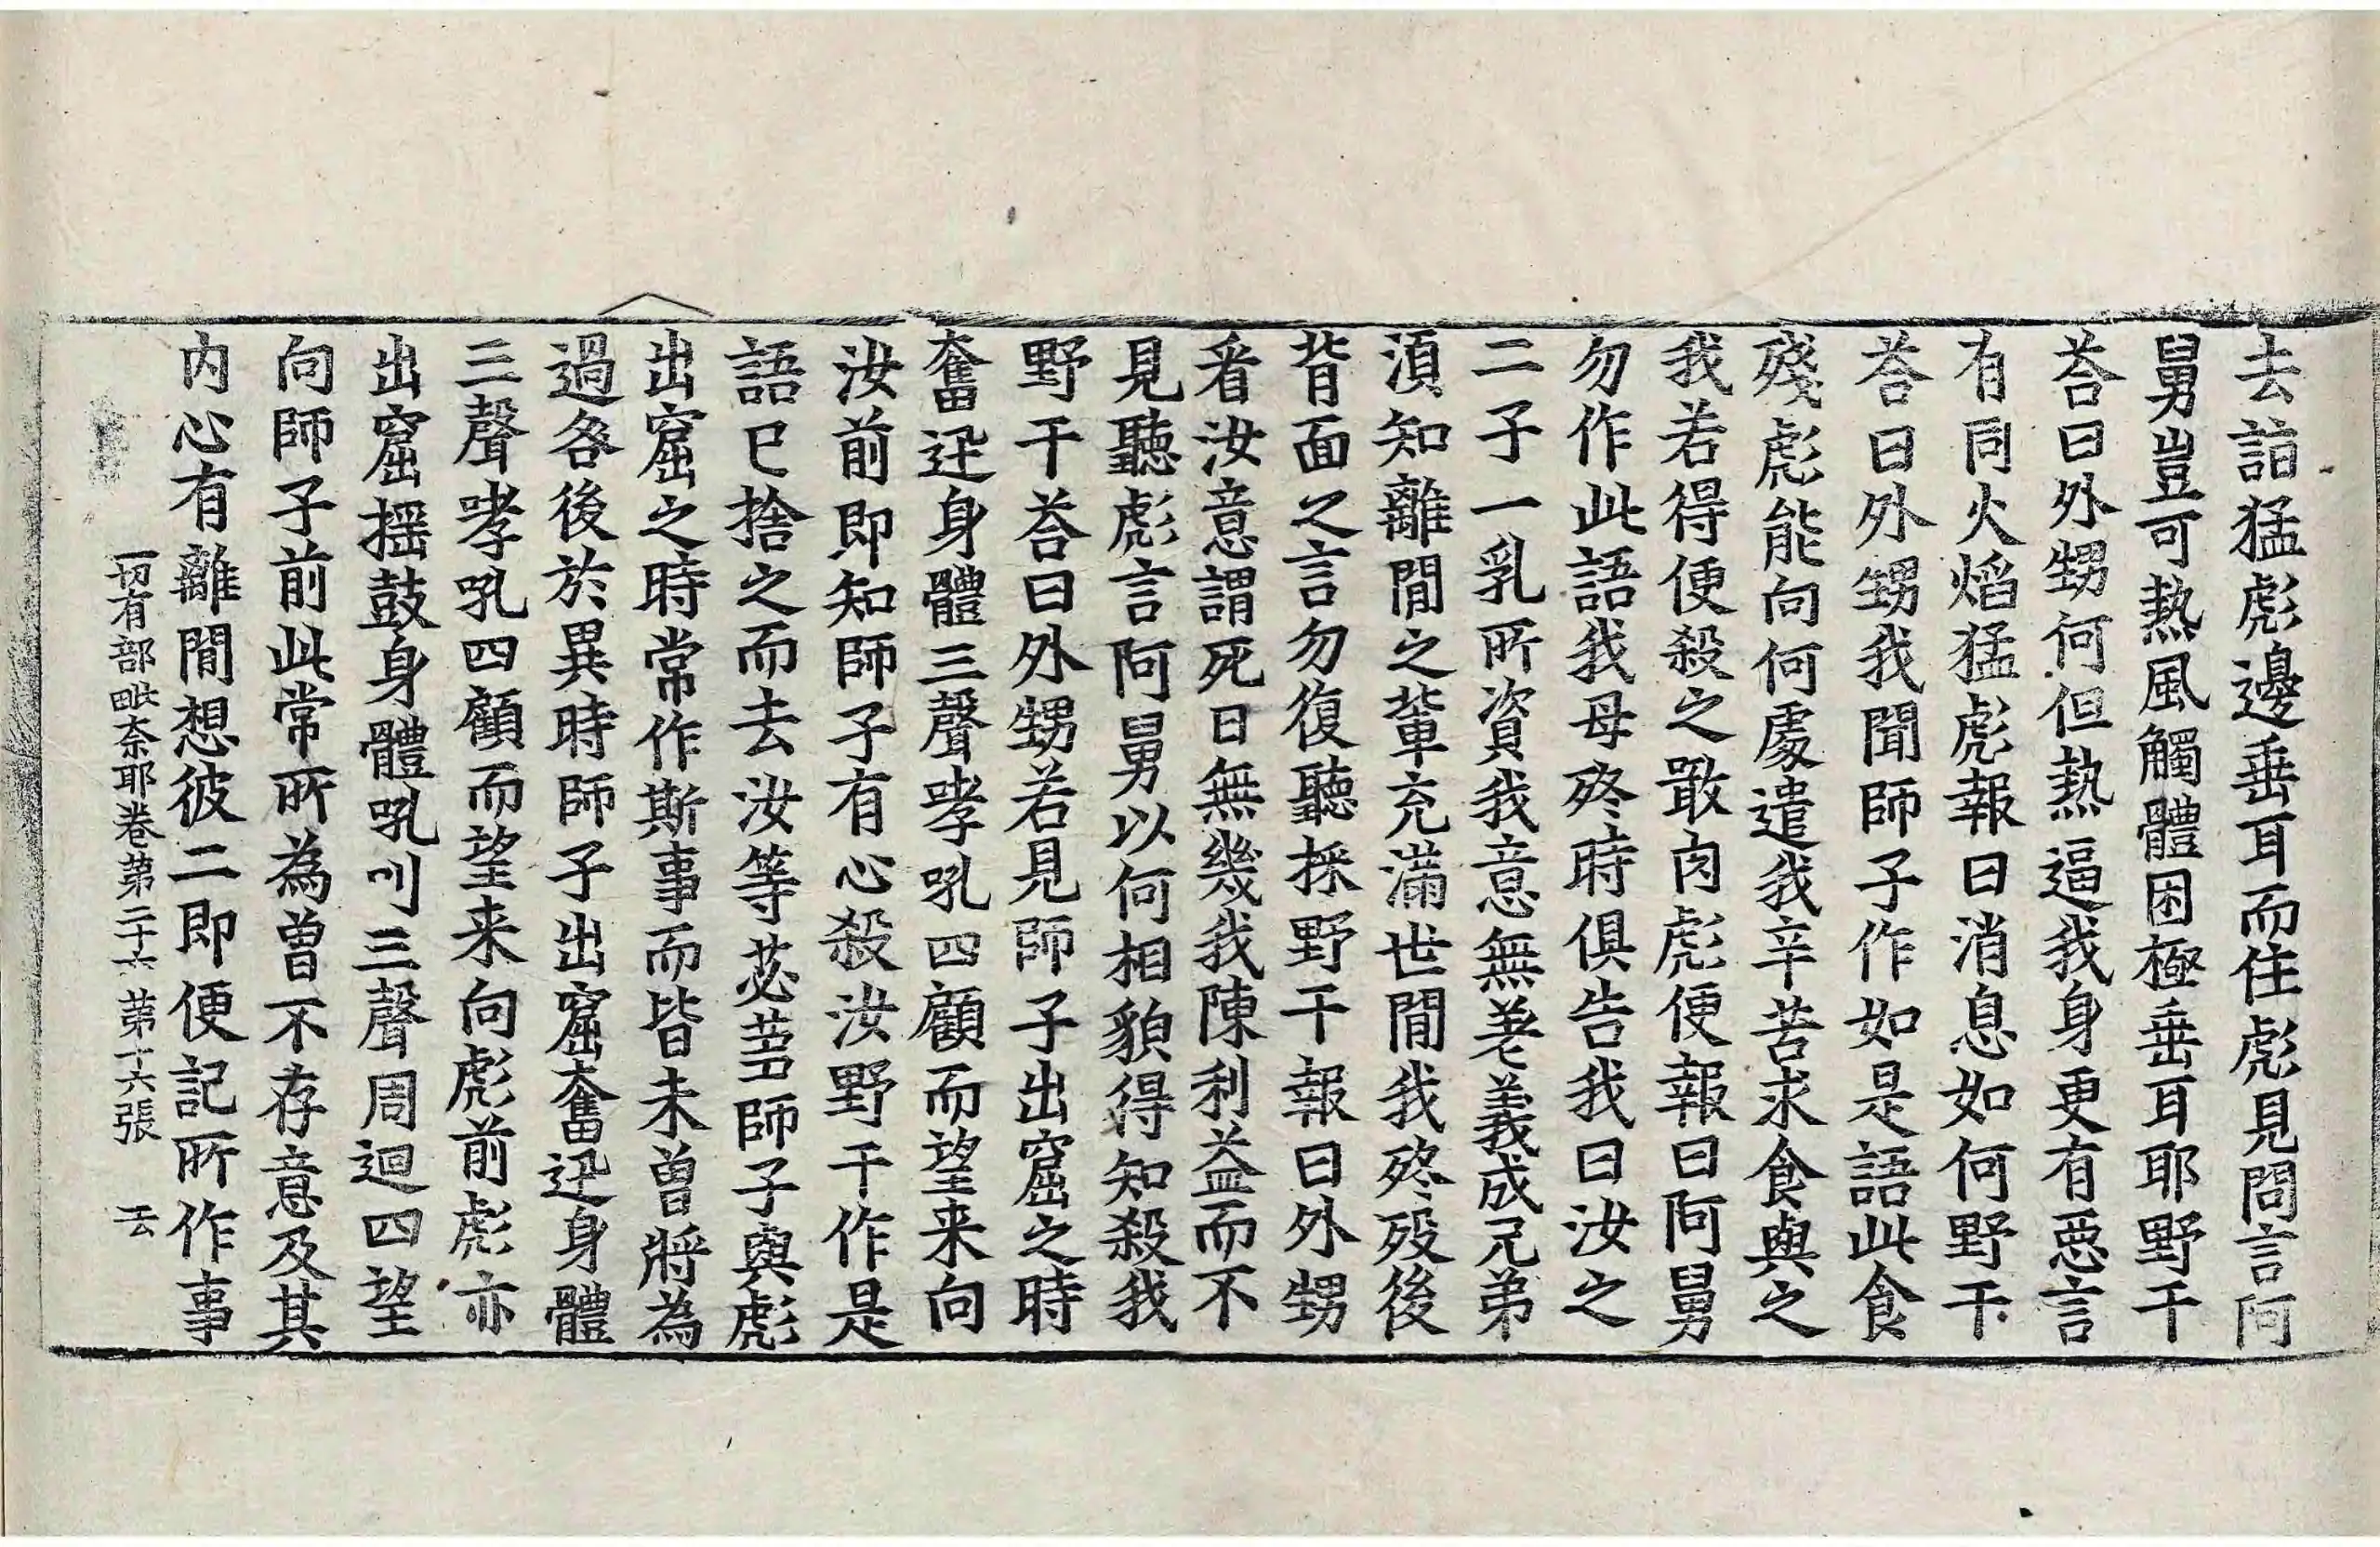 去詣猛彪邊垂耳而住彪見問言阿
舅豈可熱風觸體困極垂耳耶野干
荅曰外甥何但熱逼我身更有惡言
有同火焰猛彪報曰消息如何野干
荅曰外甥我聞師子作如是語此食
殘彪能向何處遣我辛苦求食與之
我若得便殺之敢肉彪便報曰阿舅
勿作此語我母終時俱告我曰汝之
二子一乳所資我意無差義成兄弟
湏知離間之輩充滿世間我終歿後
背面之言勿復聽採野干報曰外甥
看汝意謂死日無幾我陳利益而不
見聽彪言阿舅以何相貌得知殺我
野干荅曰外甥若見師子出窟之時
奮迅身體三聲哮吼四顧而望来向
汝前即知師子有心殺汝野干作是
語已捨之而去汝等苾蒭師子與彪
出窟之時常作斯事而皆未曾將為
過咎後於異時師子出窟奮迅身體
三聲哮吼四顧而望来向彪前彪亦
出窟揺鼓身體吼叫三聲周迴四望
向師子前此常所為曾不存意及其
内心有離間想彼二即便記所作事
一切有部毗奈耶卷第二十六 第十六張 云